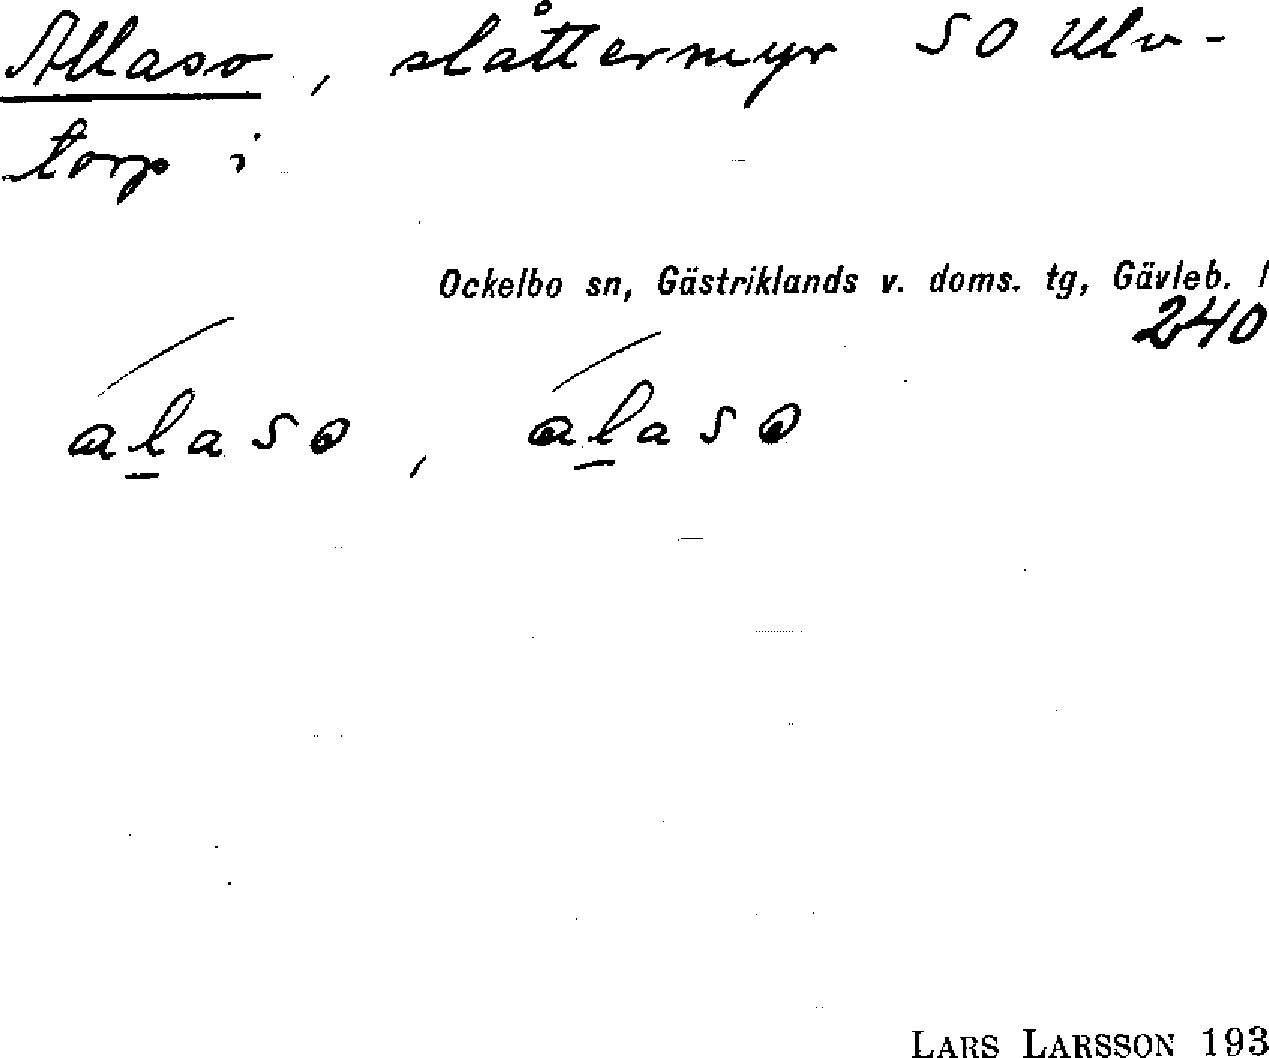 Allaso, slåttermyr SO Ulv-
torp i
Ockelbo sn, Gästriklands v. doms. tg, Gävleb. l
240
alaso, alaso
LARS LARSSON 193